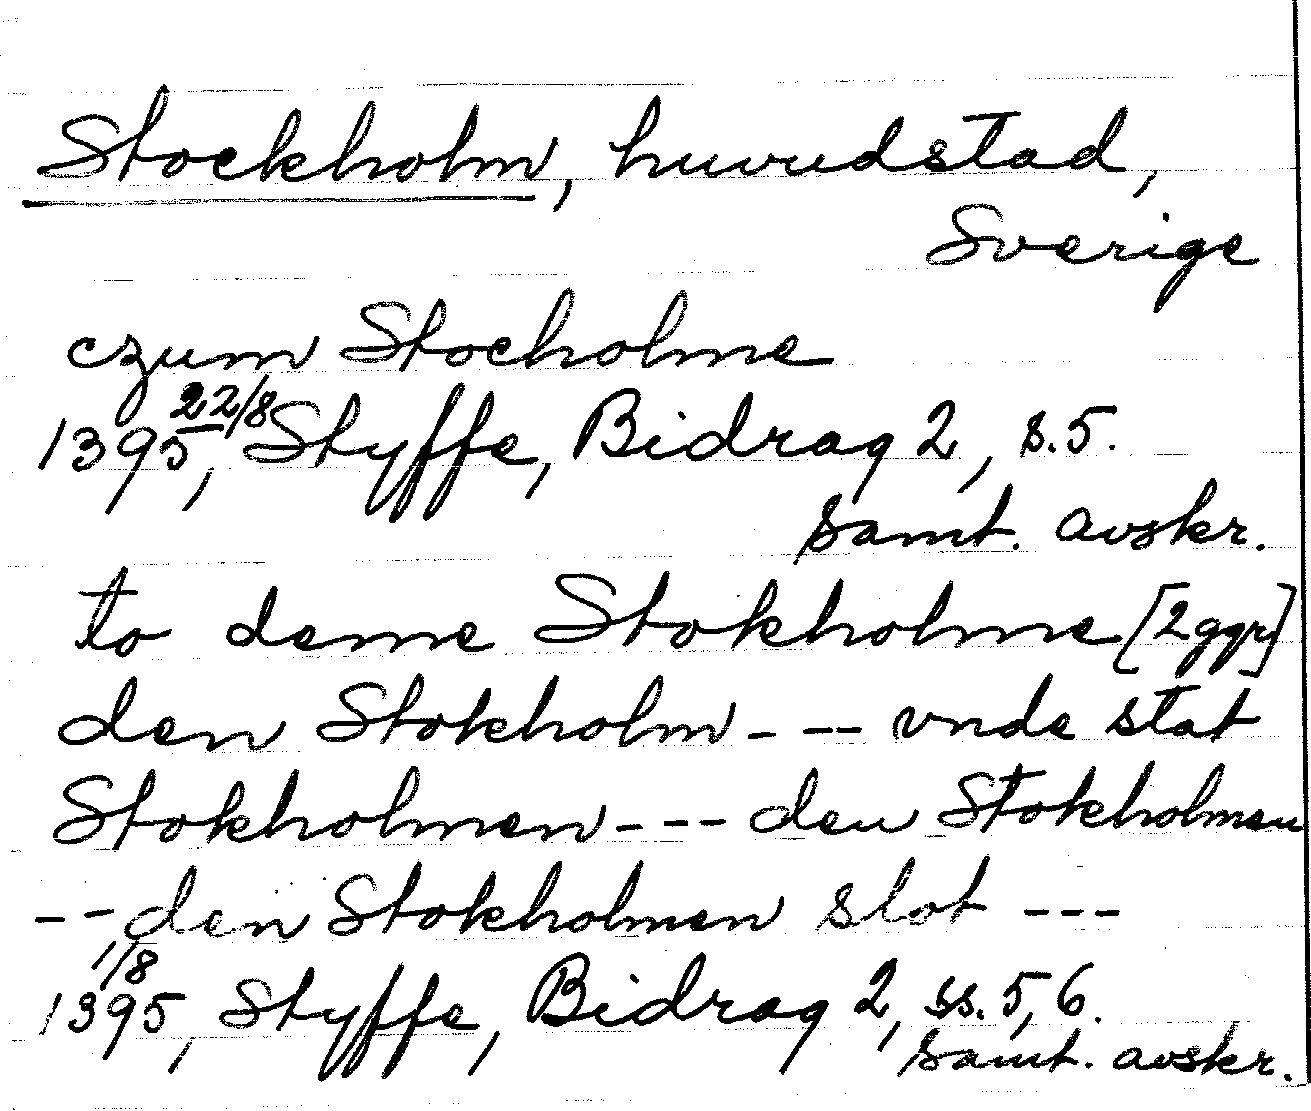 Stockholm, huvudstad,
Sverige
czum Stocholme
1395 22/8, Styffe, Bidrag 2, s.5.
samt. avskr.
to deme Stokholme [2 ggr]
den Stokholm - -- vnde stat
Stokholmen - --- den Stokholmen
-- den Stokholmen slot ---
1395 1/8, Styffe, Bidrag 2, ss. 5, 6.
samt. avskr.